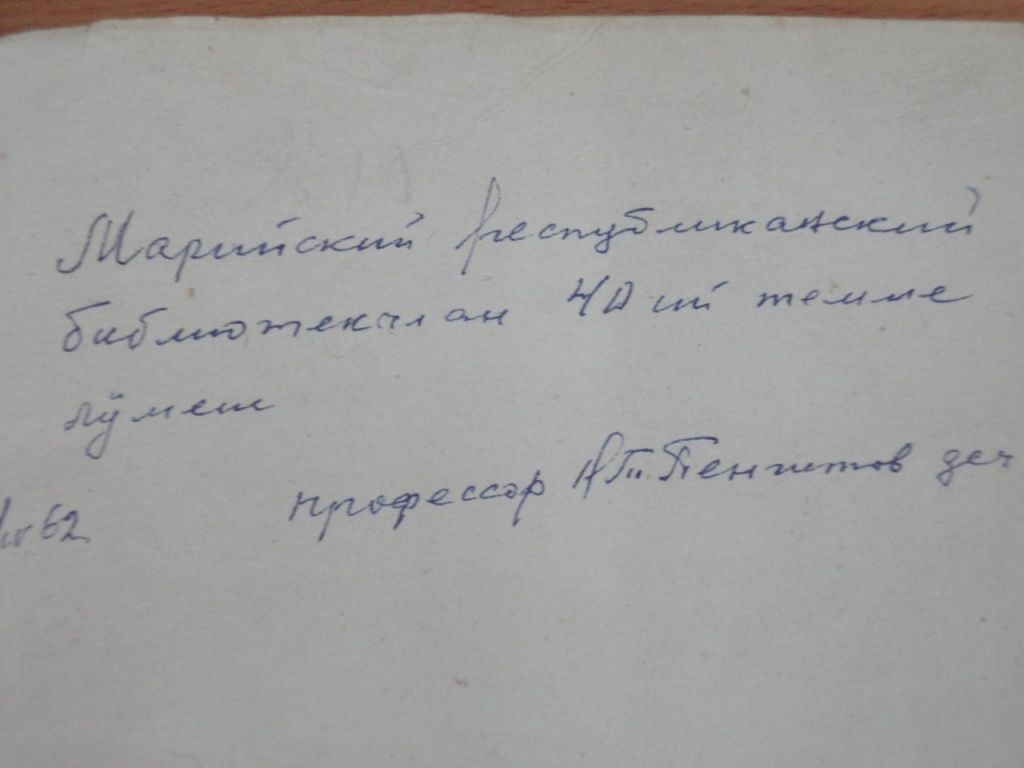 Марийский республиканский
библиотеклан 40 ий темме
лӱмеш
профессор Н.Т. Пенгитов деч
62